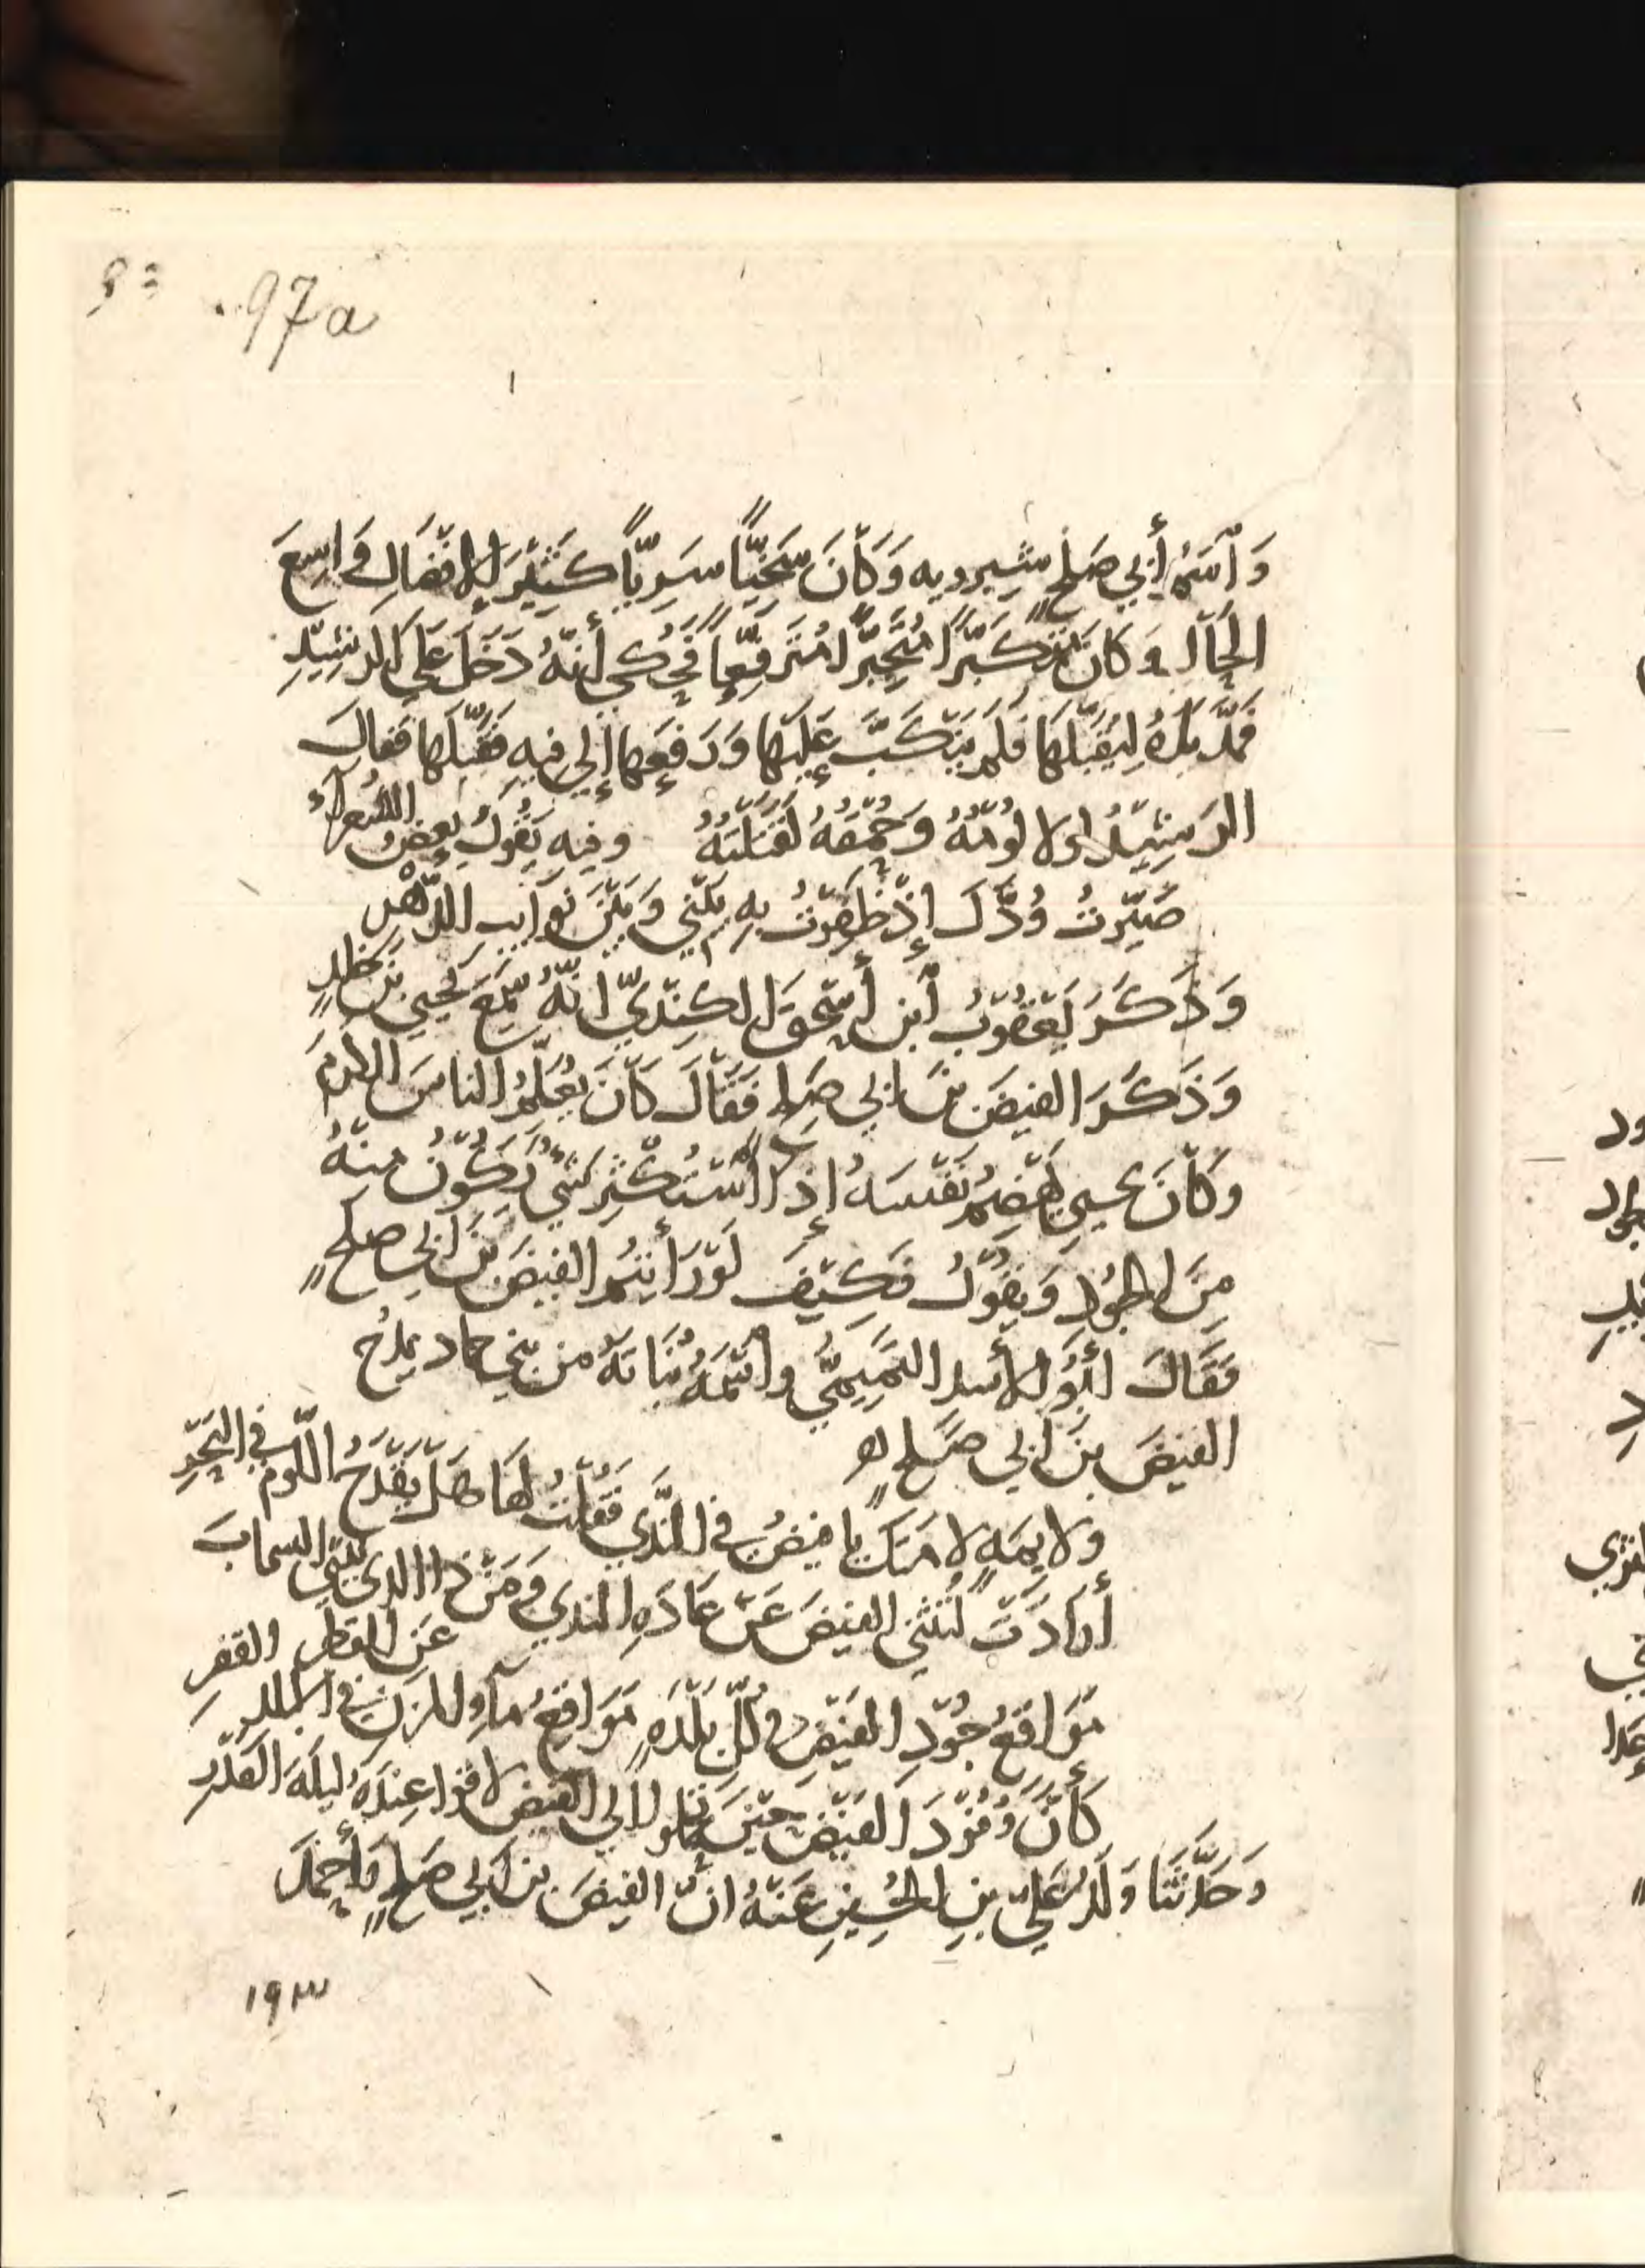 97a
وَٱسْمُ أَبِي صَلحٍ شيرويه وَكَانَ سَخِيًّا سَرِيًّا كَثِيْرَ الإِفْضَالِ وَاسِعَ
الحَالِ وَكَانَ مُتَكَبِّرًا مُتَجَبِّرًا مُتَرَفِّعًا فَحُكِيَ أَنَّهُ دَخَلَ عَلَى الرشِيْدِ
فَمَدَّ يَدَهُ لِيُقَبِّلَهَا فَلَمْ يَنْكَبَّ عَلَيْهَا وَدَفَعَهَا إِلي فِيهِ فَقَبَّلَهَا فَقَالَ
الرَشِيْدُ لولا لُوْثَهُ وَحُمْقهُ لَقَتَلْتهُ وفيه يَقُولُ بعضُ الشُعراءُ
صَيَّرْتُ وُدَّكَ إِذْ ظَفِرْتُ بِهِ بَيْني وَبَيْنَ نَوَايبِ الدَّهْرِ
وَذَكَرَ يَعْقُوْبُ ٱبن أسحقَ الكِنْدِيّ انَّهُ سَمِعَ يحيي بنَ خَلدٍ
وَذَكَرَ الفيضَ بنَ ابي صَلحٍ فَقَالَ كَانَ يعُلّمُ الناسَ الكرَمَ
وكَانَ يحيي يَهْضِمُ نَفْسَهُ إِذَا ٱسْتُكْثِرَ شَيْءٌ يَكُوْنُ مِنْهُ
مِنَ الجُوْدِ وَيَقُوْلُ فَكَيْفَ لَوْ رَأَيْتُم الفَيضَ بنَ ابي صلحٍ
فَقَالَ أَبُو الأَسدِ التَّمِيمِيُّ وٱسْمُهُ نُبَاتَهُ من بَنِي حماد يمدُح
الفيضَ بنَ ابي صَلحٍ
ولايمَهٍ لامَتكَ يا فيضُ في النَّدي فَقُلْتُ لَها هَلْ يَقْدَحُ اللّومُ في البَحْرِ
أَرَادَتْ لُتُثْنِيَ الفيضَ عَنْ عَادَهِ الندي وَمَنْ ذا الذي يثنِي السحابَ
عَنِ القطرِ والقفرِ
مَوَاقعُ جُوْدِ الفَيْضِ في كُلِّ بَلْدَهٍ مَوَاقِعُ مَآءِ المُزنِ في البلد
كَأَنَّ وُفُوْدَ الفَيْضِ حِيْنَ تحملوا الي الفيضِ لاقوا عِنْدَهُ ليلَهَ القَدْرِ
وَحَدَّثَنَا وَلَدُ عَلِيِّ بنِ الحُسِينِ عَنْهُ انَّ الفيضَ بنَ ابي صَلحٍ وَأَحْمَدَ
١٩٣